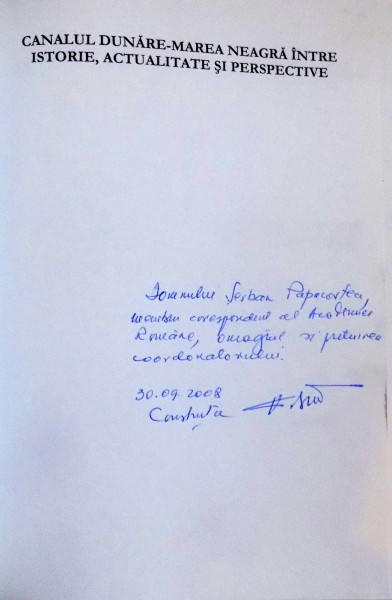 CANALUL DUNĂRE-MAREA NEAGRĂ ÎNTRE
ISTORIE, ACTUALITATE ȘI PERSPECTIVE
Domnului Șerban Papacostea,
membru corespondent al Academiei
Române, omagiul și prețuirea
coordonatorului.
30.09.2008
Constanța